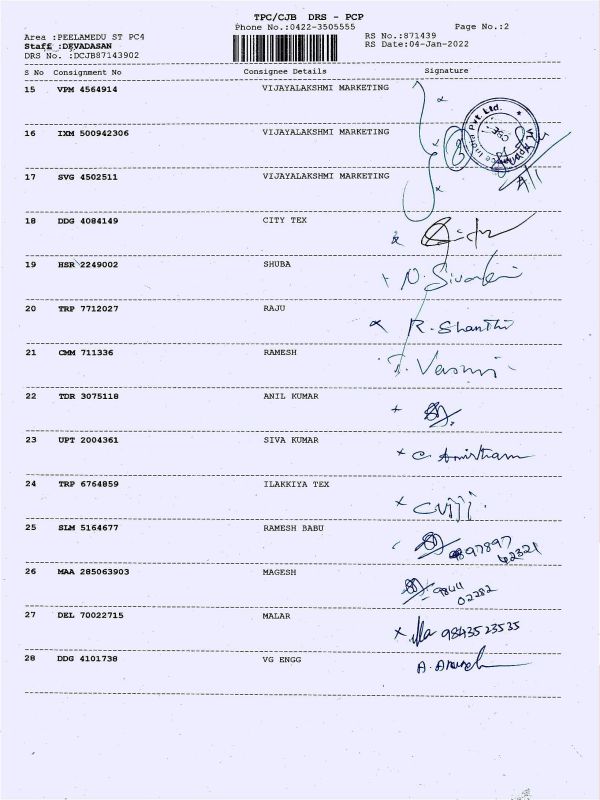 TPC/CJB DRS - PCP
Phone No.:0422-3505555 Page No.:2
Area :PEELAMEDU ST PC4 RS No.:871439
Staff :DEVADASAN RS Date:04-Jan-2022
DRS No. :DCJB87143902
S No Consignment No Consignee Details Signature
15 VPM 4564914 VIJAYALAKSHMI MARKETING
Pvt. Ltd.
16 IXM 500942306 VIJAYALAKSHMI MARKETING
17 SVG 4502511 VIJAYALAKSHMI MARKETING
18 DDG 4084149 CITY TEX
19 HSR 2249002 SHUBA
20 TRP 7712027 RAJU R. Shanthi
21 CMM 711336 RAMESH
22 TDR 3075118 ANIL KUMAR
23 UPT 2004361 SIVA KUMAR C. Amirtham
24 TRP 6764859 ILAKKIYA TEX
25 SLM 5164677 RAMESH BABU
26 MAA 285063903 MAGESH
02282
27 DEL 70022715 MALAR 9843523535
28 DDG 4101738 VG ENGG